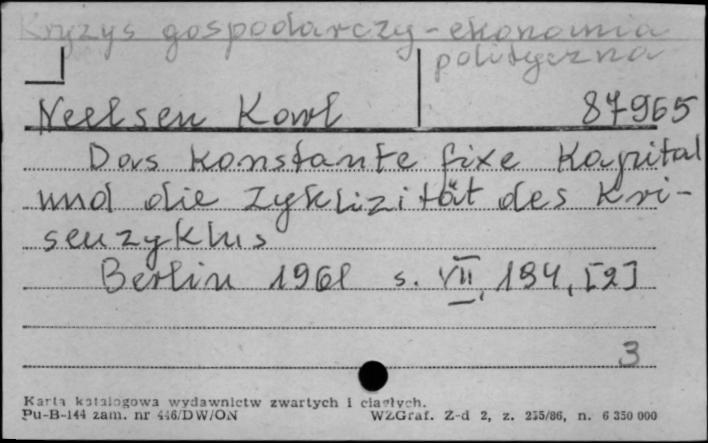 Kryzys gospodarczy - ekonomia
polityczna
Neelsen Karl 87965
Das konstante fixe Kapital
und die Zyklizität des Kri-
senzyklus
Berlin 1961 s. VII, 194, [2]
3
Karta katalogowa wydawnictw zwartych i ciągłych.
Pu-B-144 zam. nr 446/DW/ON WZGraf. Z-d 2, z. 235/86, n. 6 350 000